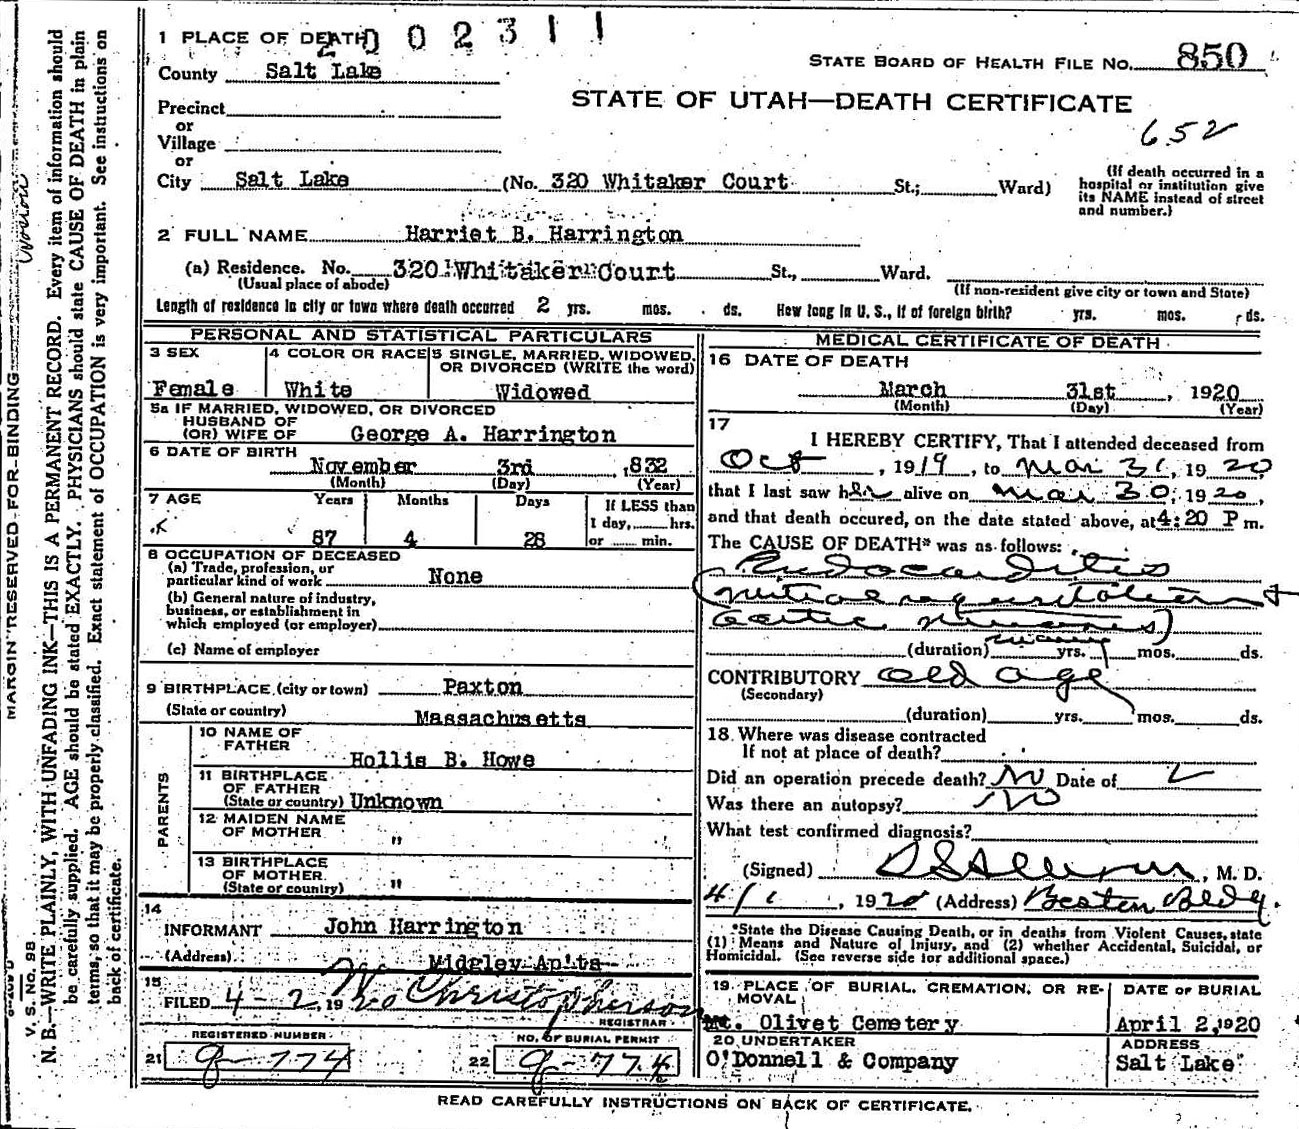 2 0 0 2 3 1 1
1 PLACE OF DEATH
County Salt Lake
STATE BOARD OF HEALTH FILE NO. 850
STATE OF UTAH—DEATH CERTIFICATE
652
Precinct
or
Village
or
City Salt Lake (No. 320 Whitaker Court St.; Ward)
(If death occurred in a
hospital or institution give
its NAME instead of street
and number.)
2 FULL NAME Harriet B. Harrington
(a) Residence. No. 320 Whitaker Court St., Ward.
(Usual place of abode) (If non-resident give city or town and State)
Length of residence in city or town where death occurred 2 yrs. mos. ds. How long in U. S., if of foreign birth? yrs. mos. ds.
PERSONAL AND STATISTICAL PARTICULARS
3 SEX 4 COLOR OR RACE 5 SINGLE, MARRIED, WIDOWED,
OR DIVORCED (WRITE the word)
Female White Widowed
5a IF MARRIED, WIDOWED, OR DIVORCED
HUSBAND OF
(OR) WIFE OF George A. Harrington
6 DATE OF BIRTH
November 3rd ,832
(Month) (Day) (Year)
7 AGE Years Months Days If LESS than
1 day, hrs.
87 4 28 or min.
8 OCCUPATION OF DECEASED
(a) Trade, profession, or
particular kind of work None
(b) General nature of industry,
business, or establishment in
which employed (or employer)
(c) Name of employer
9 BIRTHPLACE (city or town) Paxton
(State or country) Massachusetts
PARENTS
10 NAME OF
FATHER Hollis B. Howe
11 BIRTHPLACE
OF FATHER
(State or country) Unknown
12 MAIDEN NAME
OF MOTHER "
13 BIRTHPLACE
OF MOTHER
(State or country) "
14
INFORMANT John Harrington
(Address) Midgley Ap'ts
15
FILED 4-2 1920 Christopherson
REGISTRAR
REGISTERED NUMBER NO. OF BURIAL PERMIT
21 g-774 22 g-774
MEDICAL CERTIFICATE OF DEATH
16 DATE OF DEATH
March 31st , 1920
(Month) (Day) (Year)
17
I HEREBY CERTIFY, That I attended deceased from
Oct , 1919 , to Mar 31, 1920
that I last saw her alive on Mar 30, 1920,
and that death occured, on the date stated above, at 4:20 P m.
The CAUSE OF DEATH* was as follows:
Endocarditis
(mitral regurgitation +
aortic
(duration) yrs. mos. ds.
CONTRIBUTORY old age
(Secondary)
(duration) yrs. mos. ds.
18 Where was disease contracted
If not at place of death?
Did an operation precede death? No Date of
Was there an autopsy? No
What test confirmed diagnosis?
(Signed) , M. D.
4/1 , 1920 (Address) Boston Bldg.
*State the Disease Causing Death, or in deaths from Violent Causes, state
(1) Means and Nature of Injury, and (2) whether Accidental, Suicidal, or
Homicidal. (See reverse side for additional space.)
19 PLACE OF BURIAL, CREMATION, OR RE-
MOVAL DATE OF BURIAL
Mt. Olivet Cemetery April 2, 1920
20 UNDERTAKER ADDRESS
O'Donnell & Company Salt Lake
READ CAREFULLY INSTRUCTIONS ON BACK OF CERTIFICATE.
V. S. No. 98
MARGIN RESERVED FOR BINDING
N. B.—WRITE PLAINLY, WITH UNFADING INK—THIS IS A PERMANENT RECORD. Every item of information should
be carefully supplied. AGE should be stated EXACTLY. PHYSICIANS should state CAUSE OF DEATH in plain
terms, so that it may be properly classified. Exact statement of OCCUPATION is very important. See instructions on
back of certificate.